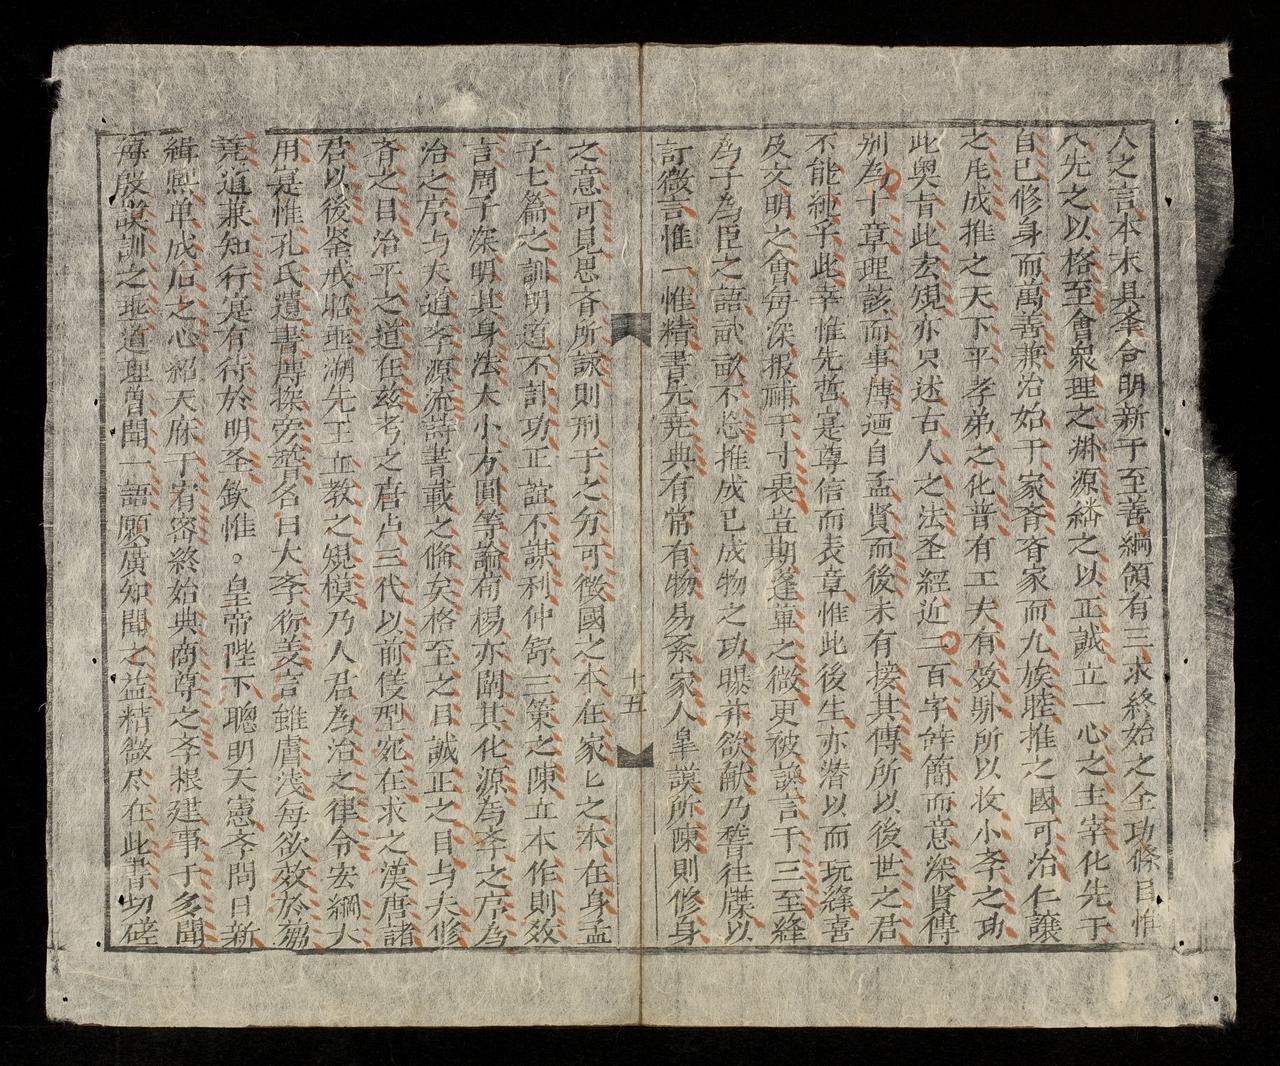 人之言本末具夆合明新于至善綱領有三求終始之全功條目惟
八先之以格至會衆理之淵源繙之以正誠立一心之主宰化先于
自己修身而萬善兼治始于家齐齐家而九族睦推之國可治仁讓
之尾成推之天下平孝弟之化普有工夫有效騐所以收小斈之功
此奧旨此宏規亦只述古人之法圣經近二百字辞簡而意深賢傳
别為十章理該而事傳廼自孟賢而後未有接其傳所以後世之君
不能純乎此幸惟先哲寔尊信而表章惟此後生亦潜以而玩繹喜
及文明之會每深报補于寸衷豈期蓬蓽之微更被諭言于三至繹
為子為臣之語畎畝不忘推成己成物之功曝芹欲献乃瞽往牒以
訂微言惟一惟精書先尭典有常有物易系家人皐謨所陳則修身
十五
之意可見思齐所詠則刑于之分可徵國之本在家匕之本在身孟
子七篇之訓明道不計功正誼不謀利仲舒三策之陳立本作則效
言周子深明其身法木小方圓等論荀楊亦闢其化源為斈之序為
治之序与夫道斈源流詩書載之俻矣格至之目誠正之目与夫修
齐之日治平之道在茲考之唐虞三代以前俊型宛在求之漢唐諸
君以後鋻戒昭垂溯先王立教之規模乃人君為治之律令宏綱大
用是惟孔氏遺書博探旁䇿名曰大斈衍義言雖膚淺每欲效於芻
尭道兼知行寔有待於明圣欽惟。皇帝陛下聰明天憲斈問日新
緝熙单成后之心紹天庥于宥密終始典商尊之斈根建事于多聞
每殷謨訓之垂道理曽聞一語願廣知聞之益精微尽在此書切磋